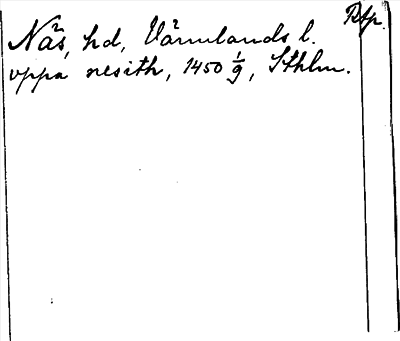 Rtp.
Näs, hd, Värmlands l.
vppa nesith, 1450 1/9, Sthlm.